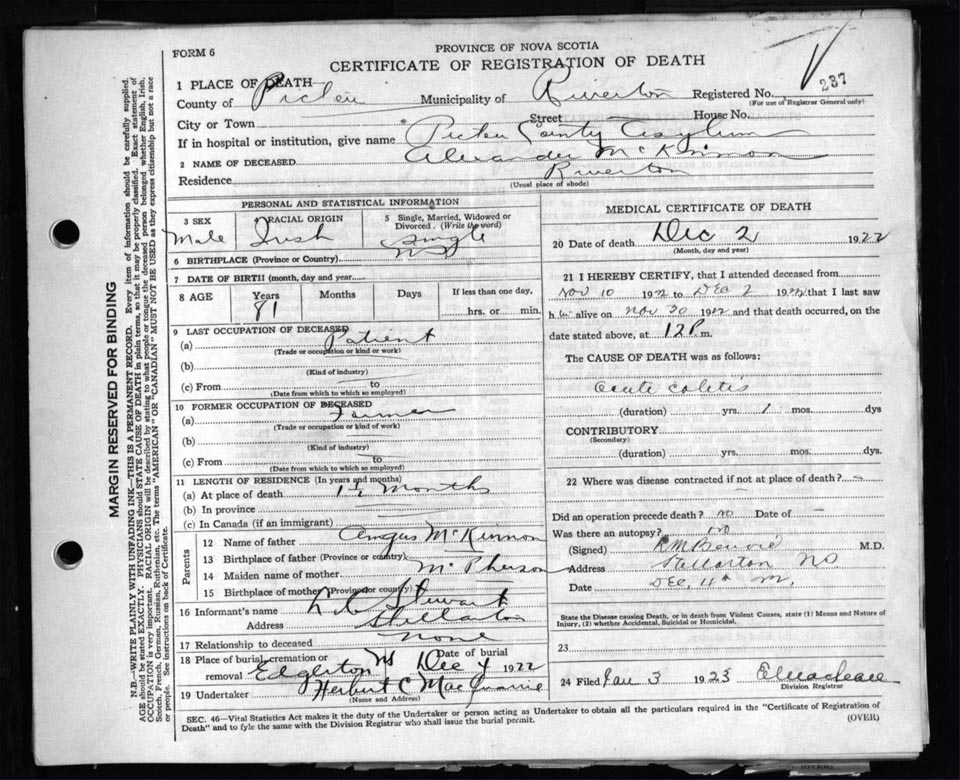 FORM 6
PROVINCE OF NOVA SCOTIA
CERTIFICATE OF REGISTRATION OF DEATH
237
1 PLACE OF DEATH
County of Pictou Municipality of Riverton Registered No.
(For use of Registrar General only)
City or Town Street House No.
If in hospital or institution, give name Pictou County Asylum
2 NAME OF DECEASED Alexander McKinnon
Residence Riverton
(Usual place of abode)
PERSONAL AND STATISTICAL INFORMATION
3 SEX Male
4 RACIAL ORIGIN Irish
5 Single, Married, Widowed or Divorced. (Write the word) Single
6 BIRTHPLACE (Province or Country) NS
7 DATE OF BIRTH (month, day and year)
8 AGE Years 81 Months Days If less than one day, hrs. or min.
9 LAST OCCUPATION OF DECEASED
(a) Patient
(Trade or occupation or kind or work)
(b)
(Kind of industry)
(c) From to
(Date from which to which so employed)
10 FORMER OCCUPATION OF DECEASED
(a) Farmer
(Trade or occupation or kind of work)
(b)
(Kind of industry)
(c) From to
(Date from which to which so employed)
11 LENGTH OF RESIDENCE (In years and months)
(a) At place of death 1½ Months
(b) In province
(c) In Canada (if an immigrant)
Parents
12 Name of father Angus McKinnon
13 Birthplace of father (Province or country)
14 Maiden name of mother McPherson
15 Birthplace of mother (Province or country)
16 Informant's name Stewart
Address Stellarton
17 Relationship to deceased none
18 Place of burial, cremation or removal Edgleton NS Date of burial Dec 4 1922
19 Undertaker Herbert C MacQuarrie
(Name and Address)
MEDICAL CERTIFICATE OF DEATH
20 Date of death Dec 2 1922
(Month, day and year)
21 I HEREBY CERTIFY, that I attended deceased from
Nov 10 1922 to Dec 2 1922 that I last saw
him alive on Nov 30 1922 and that death occurred, on the
date stated above, at 12 P.m.
The CAUSE OF DEATH was as follows:
Acute colitis
(duration) yrs. 1 mos. dys
CONTRIBUTORY
(Secondary)
(duration) yrs. mos. dys.
22 Where was disease contracted if not at place of death? -
Did an operation precede death? no Date of -
Was there an autopsy? no
(Signed) M.D.
Address Stellarton NS
Date Dec. 4th
State the Disease causing Death, or in death from Violent Causes, state (1) Means and Nature of
Injury, (2) whether Accidental, Suicidal or Homicidal.
24 Filed Jan 3 1923
Division Registrar
SEC. 46—Vital Statistics Act makes it the duty of the Undertaker or person acting as Undertaker to obtain all the particulars required in the "Certificate of Registration of
Death" and to fyle the same with the Division Registrar who shall issue the burial permit.
(OVER)
MARGIN RESERVED FOR BINDING
N.B.—WRITE PLAINLY WITH UNFADING INK—THIS IS A PERMANENT RECORD. Every item of information should be carefully supplied.
AGE should be stated EXACTLY. PHYSICIANS should STATE CAUSE OF DEATH in plain terms, so that it may be properly classified. Exact statement of
OCCUPATION is very important. RACIAL ORIGIN will be described by stating to what people or tongue the deceased person belonged whether English, Irish,
Scotch, French, German, Russian, Ruthenian, etc. The terms "AMERICAN" OR "CANADIAN" MUST NOT BE USED as they express citizenship but not a race
or people. See instructions on back of Certificate.